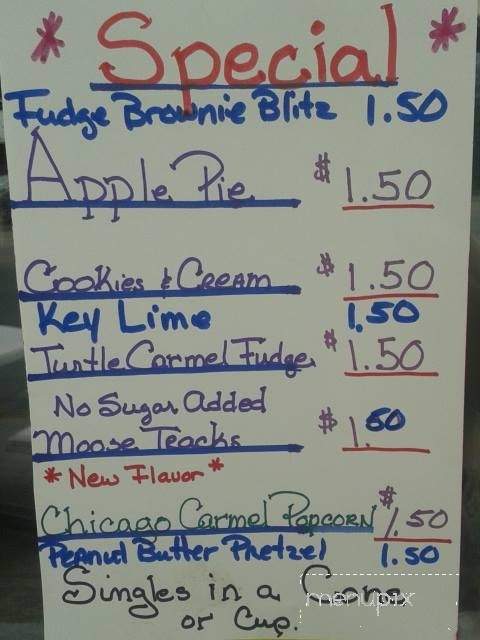 * Special *
Fudge Brownie Blitz 1.50
Apple Pie $1.50
Cookies & Cream $1.50
Key Lime 1.50
Turtle Carmel Fudge $1.50
No Sugar Added
Moose Tracks $1.50
*New Flavor*
Chicago Carmel Popcorn $1.50
Peanut Butter Pretzel 1.50
Singles in a Cone
or Cup.
menupix